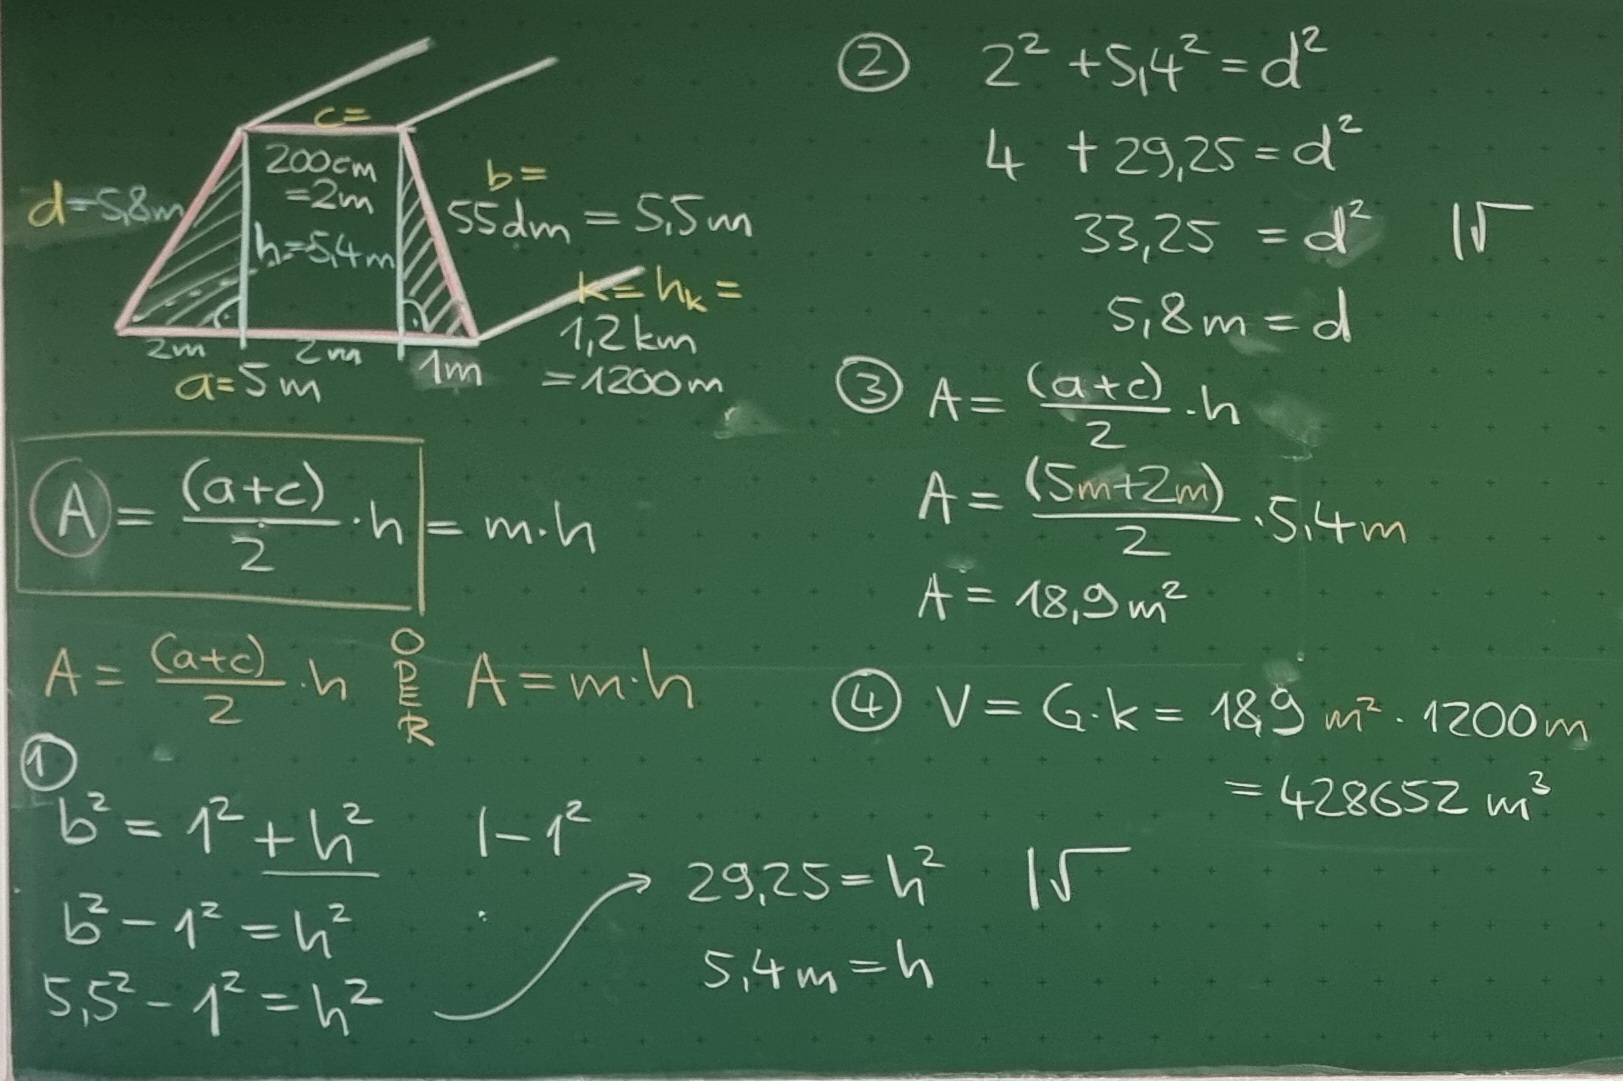 c=
200cm
=2m
d=5,8m
h=5,4m
b=
55dm = 5,5m
k = hₖ =
1,2km
=1200m
2m 2m 1m
a=5m
A = (a+c)/2 · h = m·h
A = (a+c)/2 · h ODER A = m·h
①
b² = 1² + h² |-1²
b² - 1² = h²
5,5² - 1² = h²
29,25 = h² |√
5,4m = h
② 2² + 5,4² = d²
4 + 29,25 = d²
33,25 = d² |√
5,8m = d
③ A = (a+c)/2 · h
A = (5m+2m)/2 · 5,4m
A = 18,9m²
④ V = G·k = 18,9 m² · 1200m
= 428652 m³